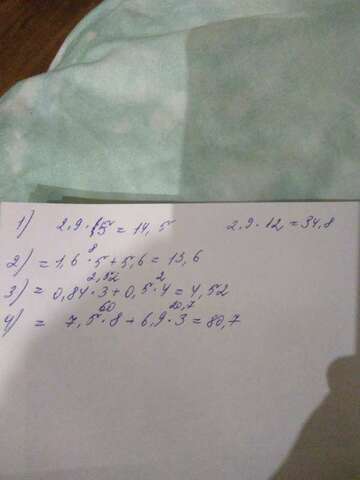 1) 2,9·5=14,5 2,9·12=34,8
8
2) = 1,6·5+5,6=13,6
2,52 2
3) = 0,84·3+0,5·4=4,52
60 20,7
4) = 7,5·8+6,9·3=80,7